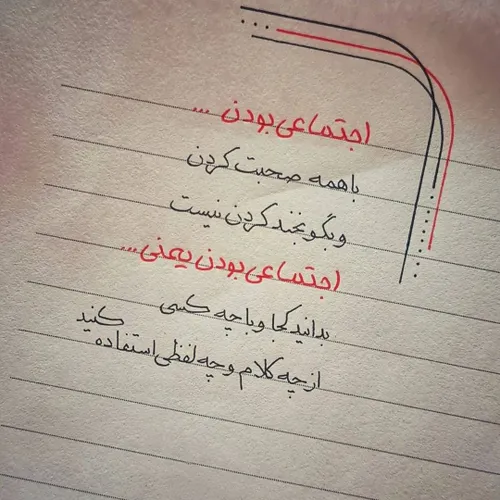 اجتماعی بودن ...
با همه صحبت کردن
و بگو بخند کردن نیست
اجتماعی بودن یعنی...
بدانید کجا و با چه کسی
از چه کلام و چه لفظی استفاده کنید